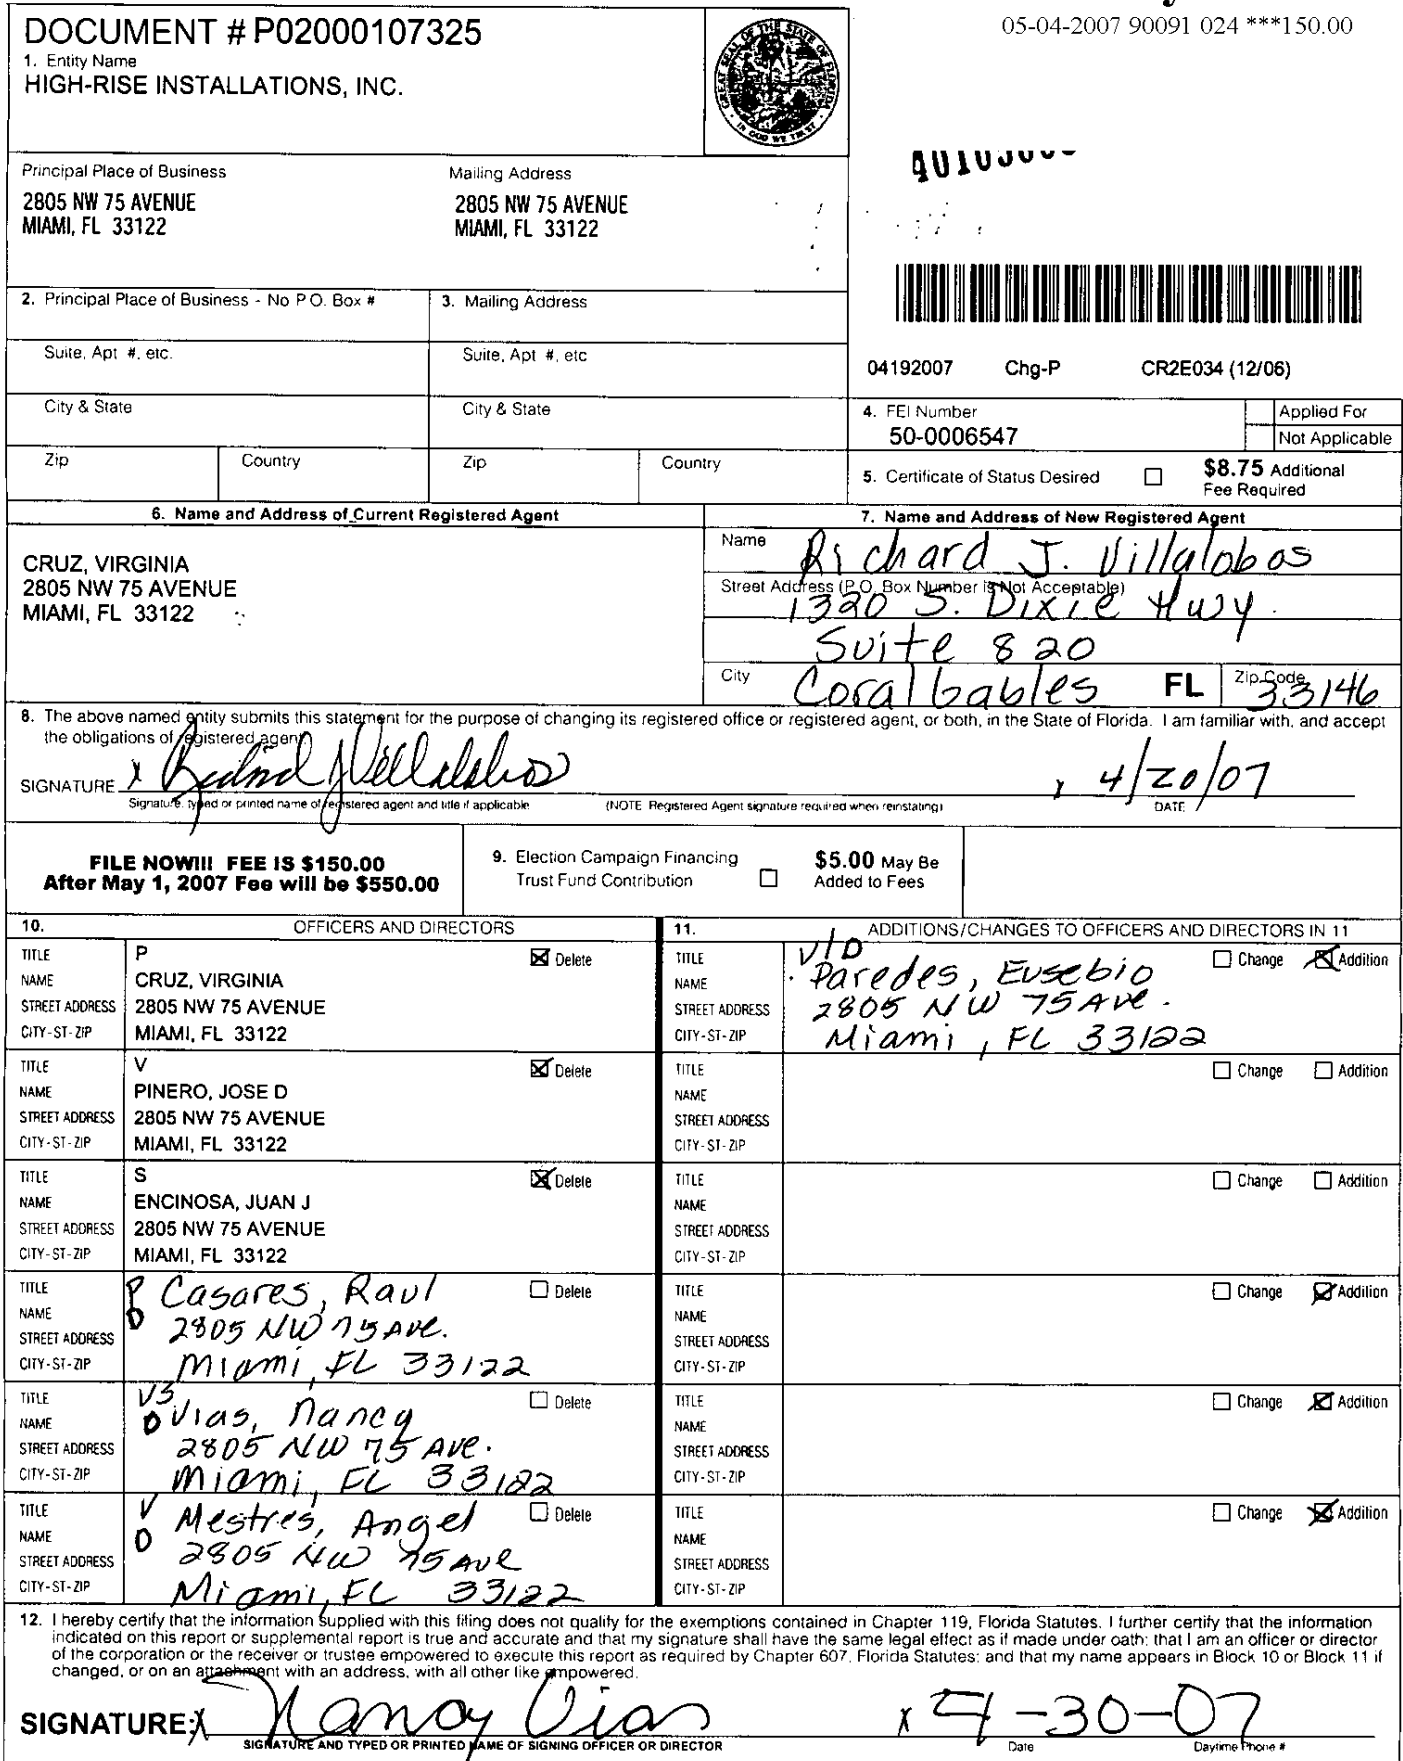 05-04-2007 90091 024 ***150.00
DOCUMENT # P02000107325
1. Entity Name
HIGH-RISE INSTALLATIONS, INC.
GREAT SEAL OF THE STATE OF FLORIDA
IN GOD WE TRUST
Principal Place of Business
2805 NW 75 AVENUE
MIAMI, FL 33122
Mailing Address
2805 NW 75 AVENUE
MIAMI, FL 33122
2. Principal Place of Business - No P O. Box #
3. Mailing Address
Suite, Apt #, etc.
Suite, Apt #, etc
04192007 Chg-P CR2E034 (12/06)
City & State
City & State
4. FEI Number
50-0006547
Applied For
Not Applicable
Zip
Country
Zip
Country
5. Certificate of Status Desired
$8.75 Additional
Fee Required
6. Name and Address of Current Registered Agent
CRUZ, VIRGINIA
2805 NW 75 AVENUE
MIAMI, FL 33122
7. Name and Address of New Registered Agent
Name Richard J. Villalobos
Street Address (P.O. Box Number is Not Acceptable)
1320 S. Dixie Hwy.
Suite 820
City Coral Gables FL Zip Code 33146
8. The above named entity submits this statement for the purpose of changing its registered office or registered agent, or both, in the State of Florida. I am familiar with, and accept
the obligations of registered agent
SIGNATURE x Richard J Villalobos x 4/20/07
Signature, typed or printed name of registered agent and title if applicable (NOTE Registered Agent signature required when reinstating) DATE
FILE NOW!!! FEE IS $150.00
After May 1, 2007 Fee will be $550.00
9. Election Campaign Financing
Trust Fund Contribution
$5.00 May Be
Added to Fees
10. OFFICERS AND DIRECTORS
11. ADDITIONS/CHANGES TO OFFICERS AND DIRECTORS IN 11
TITLE P Delete
NAME CRUZ, VIRGINIA
STREET ADDRESS 2805 NW 75 AVENUE
CITY-ST-ZIP MIAMI, FL 33122
TITLE V/D Change Addition
NAME Paredes, Eusebio
STREET ADDRESS 2805 NW 75 Ave.
CITY-ST-ZIP Miami, FL 33122
TITLE V Delete
NAME PINERO, JOSE D
STREET ADDRESS 2805 NW 75 AVENUE
CITY-ST-ZIP MIAMI, FL 33122
TITLE Change Addition
NAME
STREET ADDRESS
CITY-ST-ZIP
TITLE S Delete
NAME ENCINOSA, JUAN J
STREET ADDRESS 2805 NW 75 AVENUE
CITY-ST-ZIP MIAMI, FL 33122
TITLE Change Addition
NAME
STREET ADDRESS
CITY-ST-ZIP
TITLE P Casares, Raul Delete
NAME D
STREET ADDRESS 2805 NW 75 Ave.
CITY-ST-ZIP Miami, FL 33122
TITLE Change Addition
NAME
STREET ADDRESS
CITY-ST-ZIP
TITLE VS Delete
NAME D Vias, Nancy
STREET ADDRESS 2805 NW 75 Ave.
CITY-ST-ZIP Miami, FL 33122
TITLE Change Addition
NAME
STREET ADDRESS
CITY-ST-ZIP
TITLE V Mestres, Angel Delete
NAME D
STREET ADDRESS 2805 NW 75 Ave
CITY-ST-ZIP Miami, FL 33122
TITLE Change Addition
NAME
STREET ADDRESS
CITY-ST-ZIP
12. I hereby certify that the information supplied with this filing does not qualify for the exemptions contained in Chapter 119, Florida Statutes. I further certify that the information
indicated on this report or supplemental report is true and accurate and that my signature shall have the same legal effect as if made under oath; that I am an officer or director
of the corporation or the receiver or trustee empowered to execute this report as required by Chapter 607, Florida Statutes; and that my name appears in Block 10 or Block 11 if
changed, or on an attachment with an address, with all other like empowered.
SIGNATURE: x Nancy Vias x 4-30-07
SIGNATURE AND TYPED OR PRINTED NAME OF SIGNING OFFICER OR DIRECTOR Date Daytime Phone #